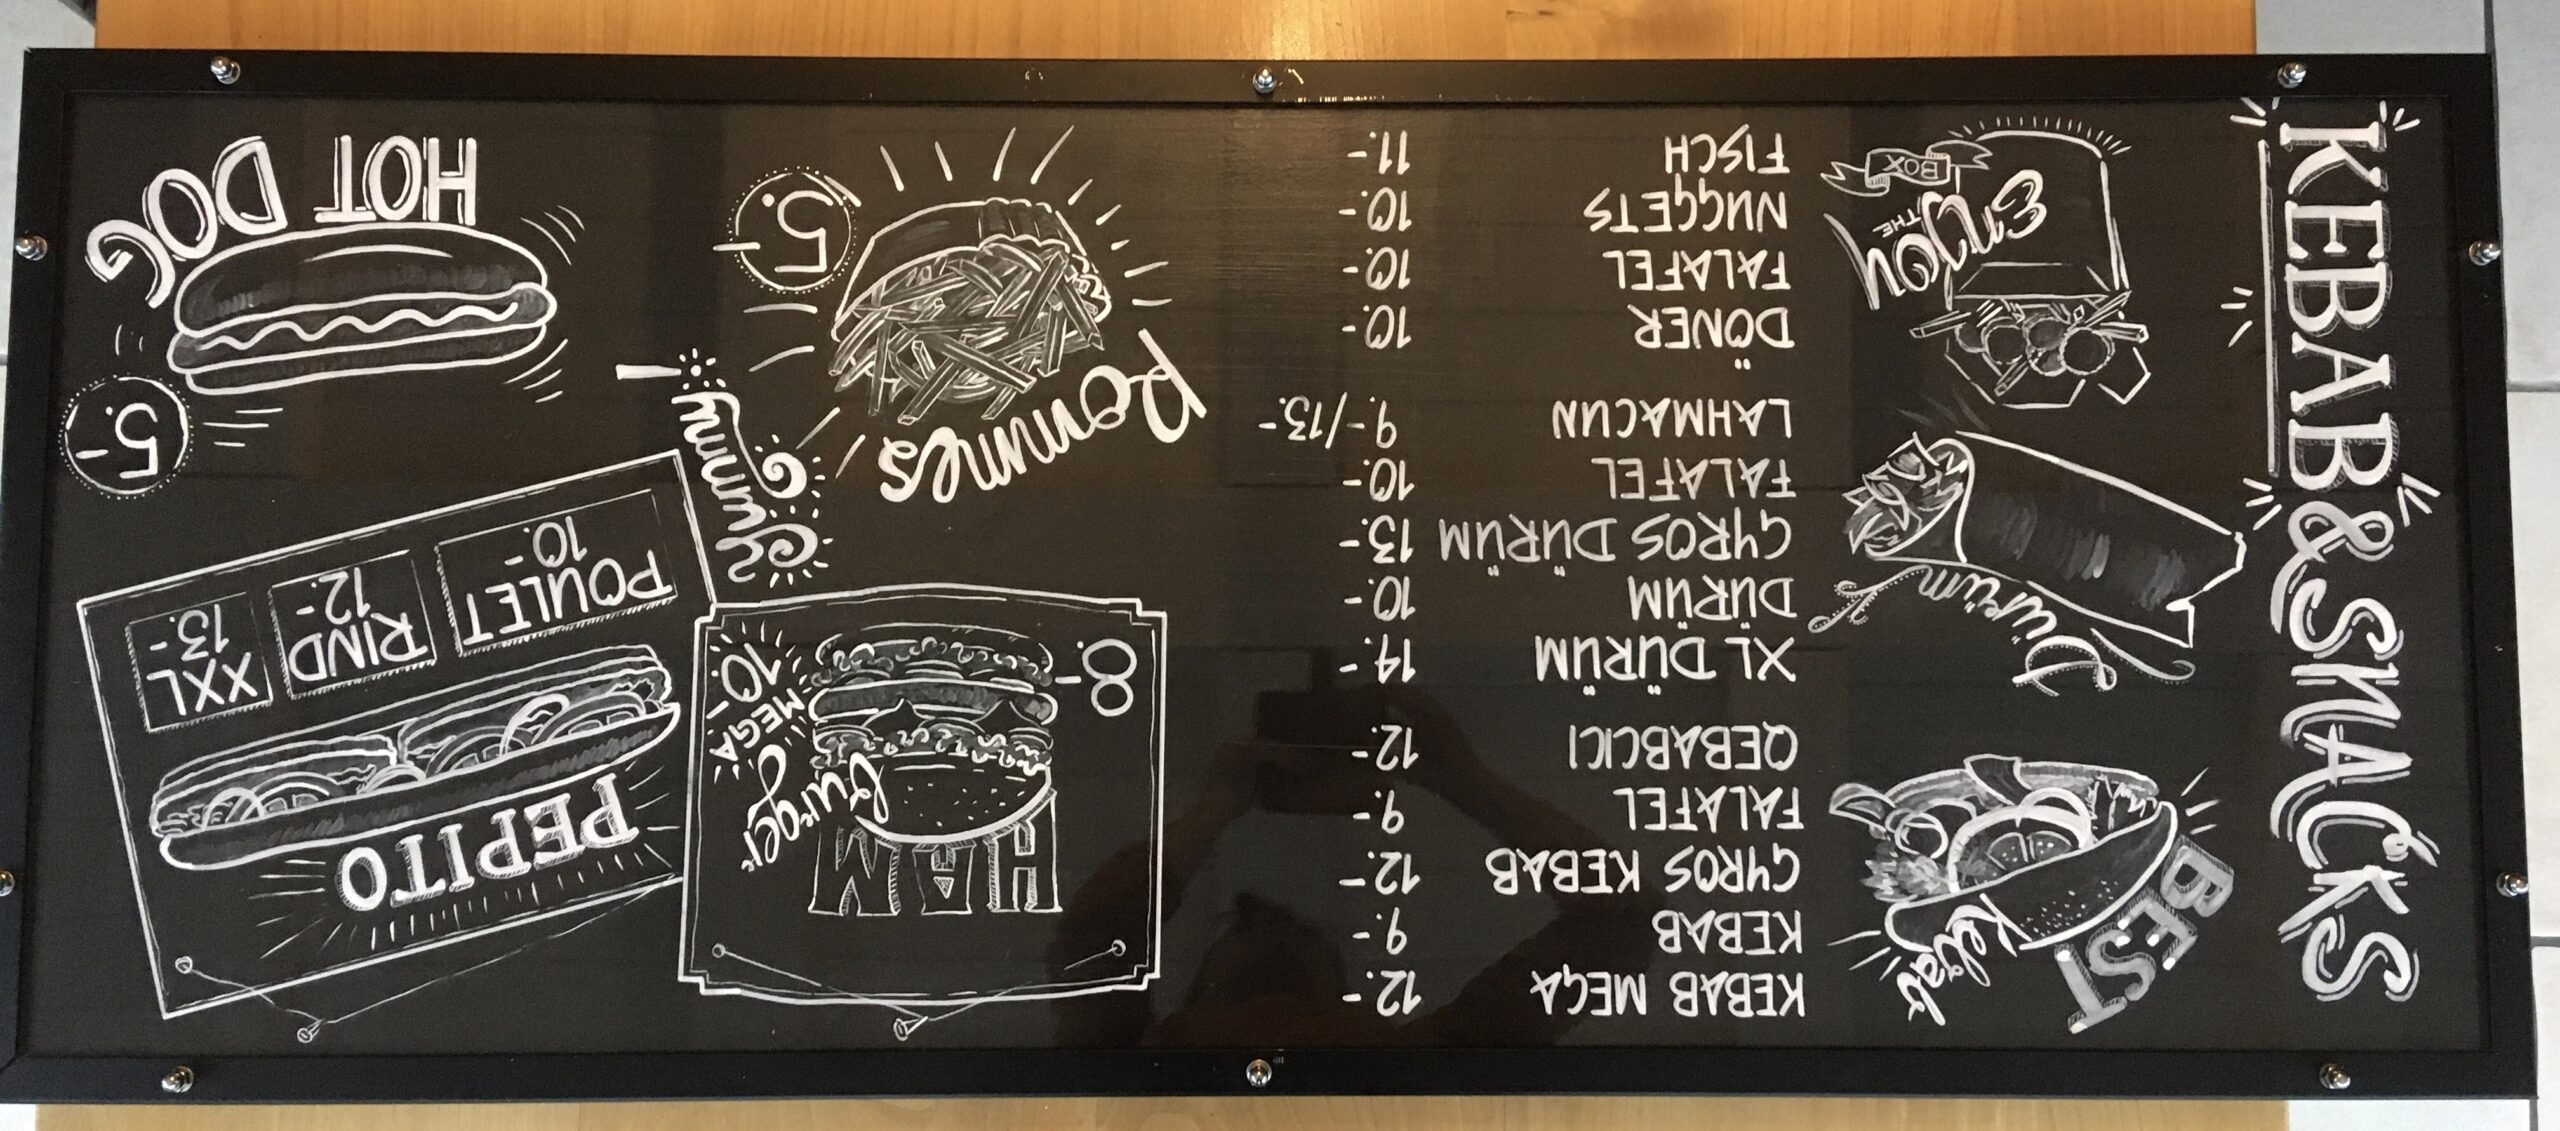 KEBAB & SNACKS
BEST
Kebab
KEBAB MEGA 12.-
KEBAB 9.-
GYROS KEBAB 12.-
FALAFEL 9.-
QEBABCICI 12.-
Dürüm
XL DÜRÜM 14.-
DÜRÜM 10.-
GYROS DÜRÜM 13.-
FALAFEL 10.-
LAHMACUN 9.-/13.-
Enjoy
THE
BOX
DÖNER 10.-
FALAFEL 10.-
NUGGETS 10.-
FISCH 11.-
HAM
Burger
8.-
MEGA
10.-
Yummy!
Pommes
5.-
PEPITO
POULET
10.-
RIND
12.-
XXL
13.-
5.-
HOT DOG